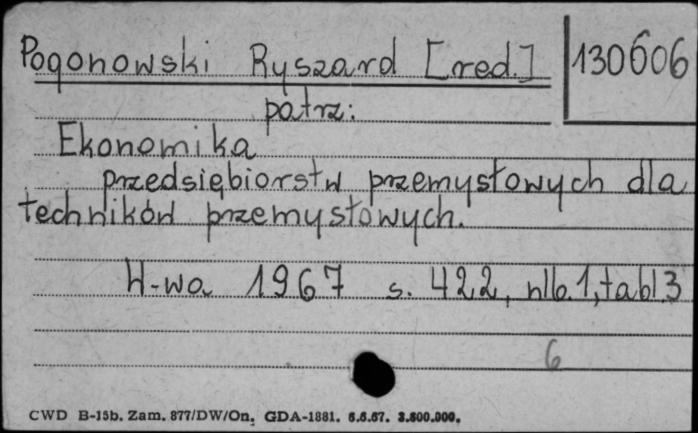 Pogonowski Ryszard [red.]
130606
patrz:
Ekonomika
przedsiębiorstw przemysłowych dla
techników przemysłowych.
W-wa 1967 s. 422, nlb.1, tabl 3
6
CWD B-15b. Zam. 877/DW/On. GDA-1881. 6.6.67. 3.600.000.